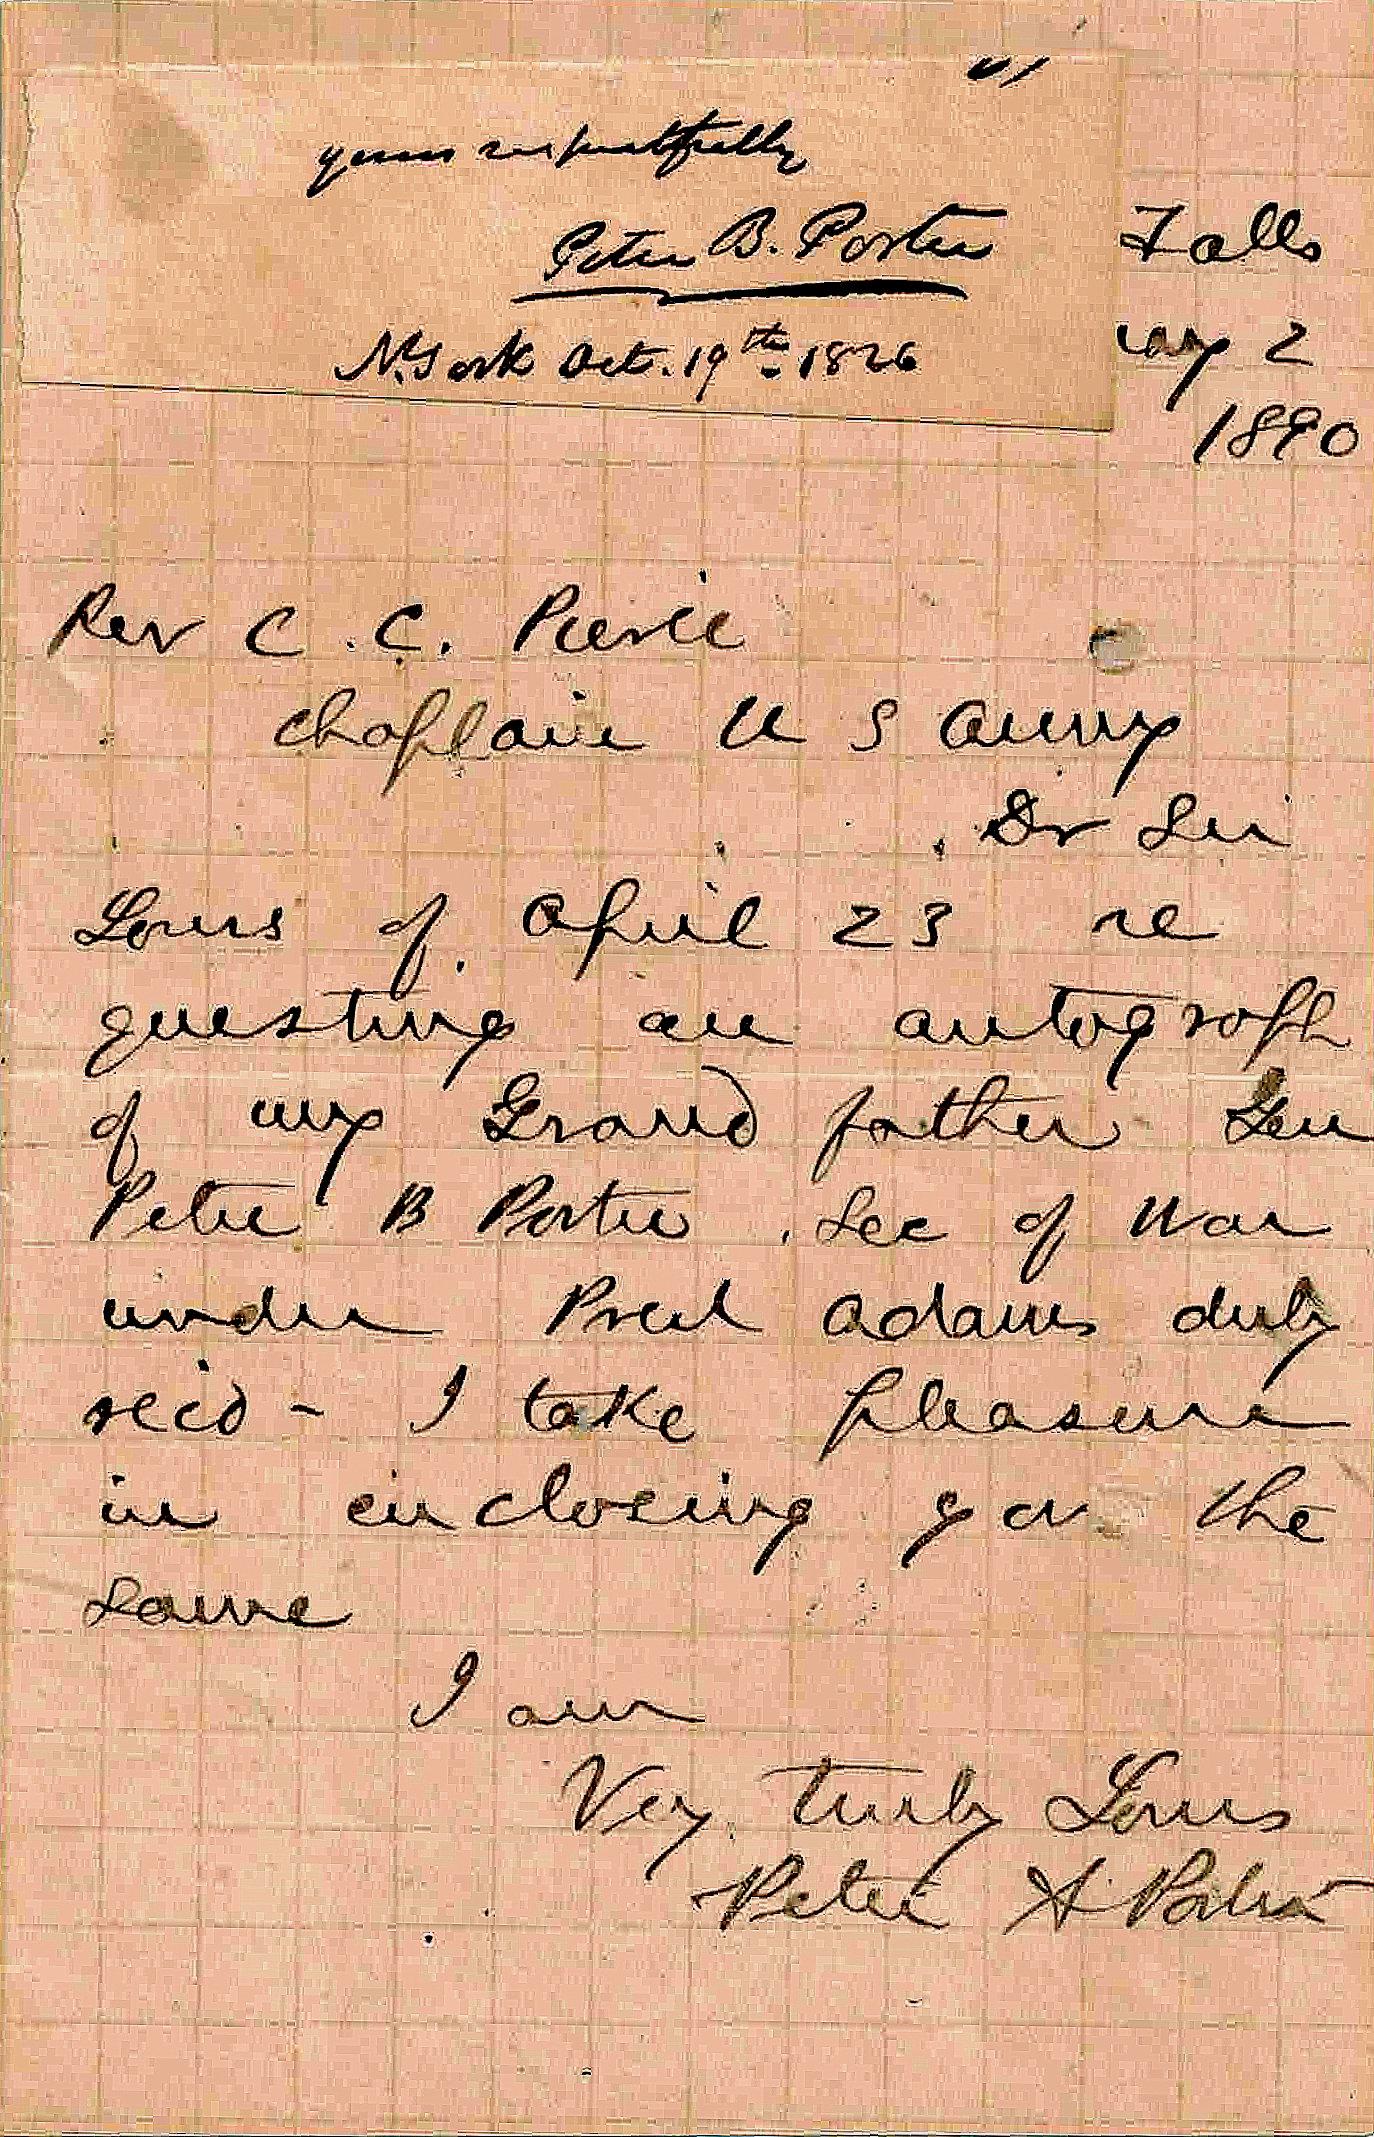 yours respectfully
Peter B. Porter
N. York Oct. 19th 1826
Falls
ay 2
1890
Rev C. C. Pierce
Chaplain U S Army
Dr Sir
Yours of April 23 re
questing an autograph
of my Grand father Gen
Peter B Porter . Sec of War
under Pred Adams duly
recd - I take pleasure
in enclosing you the
same
I am
Very truly Yours
Peter A Porter